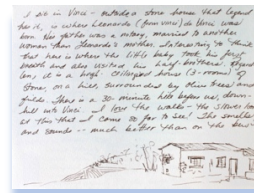 I sit in Vinci - outside a stone house that legend
has it, is where Leonardo (from Vinci) da Vinci was
born. His father was a notary, married to another
woman than Leonardo's mother. Interesting to think
that here is where the little baby took his first
breath and also visited his half-brothers.
it is a huge house (3-rooms) of
stone, on a hill, surrounded by olive trees and
fields. There is a 30-minute hike before us, down-
hill into Vinci. I love the walks - the
this that I come so far to see! The smells
and sounds -- much better than on the bus